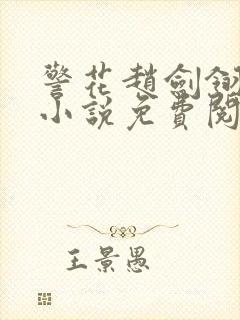 警花趙劍釵
小說免費閱
王景愚